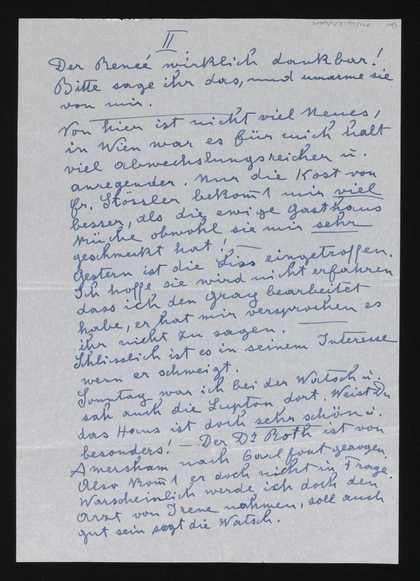 II
Der Reneé wirklich dankbar!
Bitte sage ihr das, und umarme sie
von mir.
Von hier ist nicht viel Neues,
in Wien war es für mich halt
viel abwechslungsreicher u.
anregender. Nur die Kost von
fr. Stössler bekom̅t mir viel
besser, als die ewige Gasthaus
Küche obwohl sie mir sehr
geschmeckt hat! —
Gestern ist die Liss eingetroffen.
Ich hoffe sie wird nicht erfahren
dass ich den Gray bearbeitet
habe, er hat mir versprochen es
ihr nicht zu sagen. —
Schliesslich ist es in seinem Interesse
wenn er schweigt.
Sonntag war ich bei der Watsch u.
sah auch die Lupton dort. Weist Du
das Haus ist doch sehr schön u.
besonders! — Der Dr Roth ist von
Amersham nach gezogen.
Also kom̅t er doch nicht in Frage.
Warscheinlich werde ich doch den
Arzt von Irene nehmen, soll auch
gut sein sagt die Watsch.